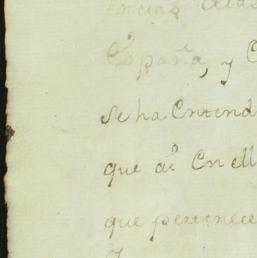 España, y
se ha Entend
que a.º En ell
que pertenece